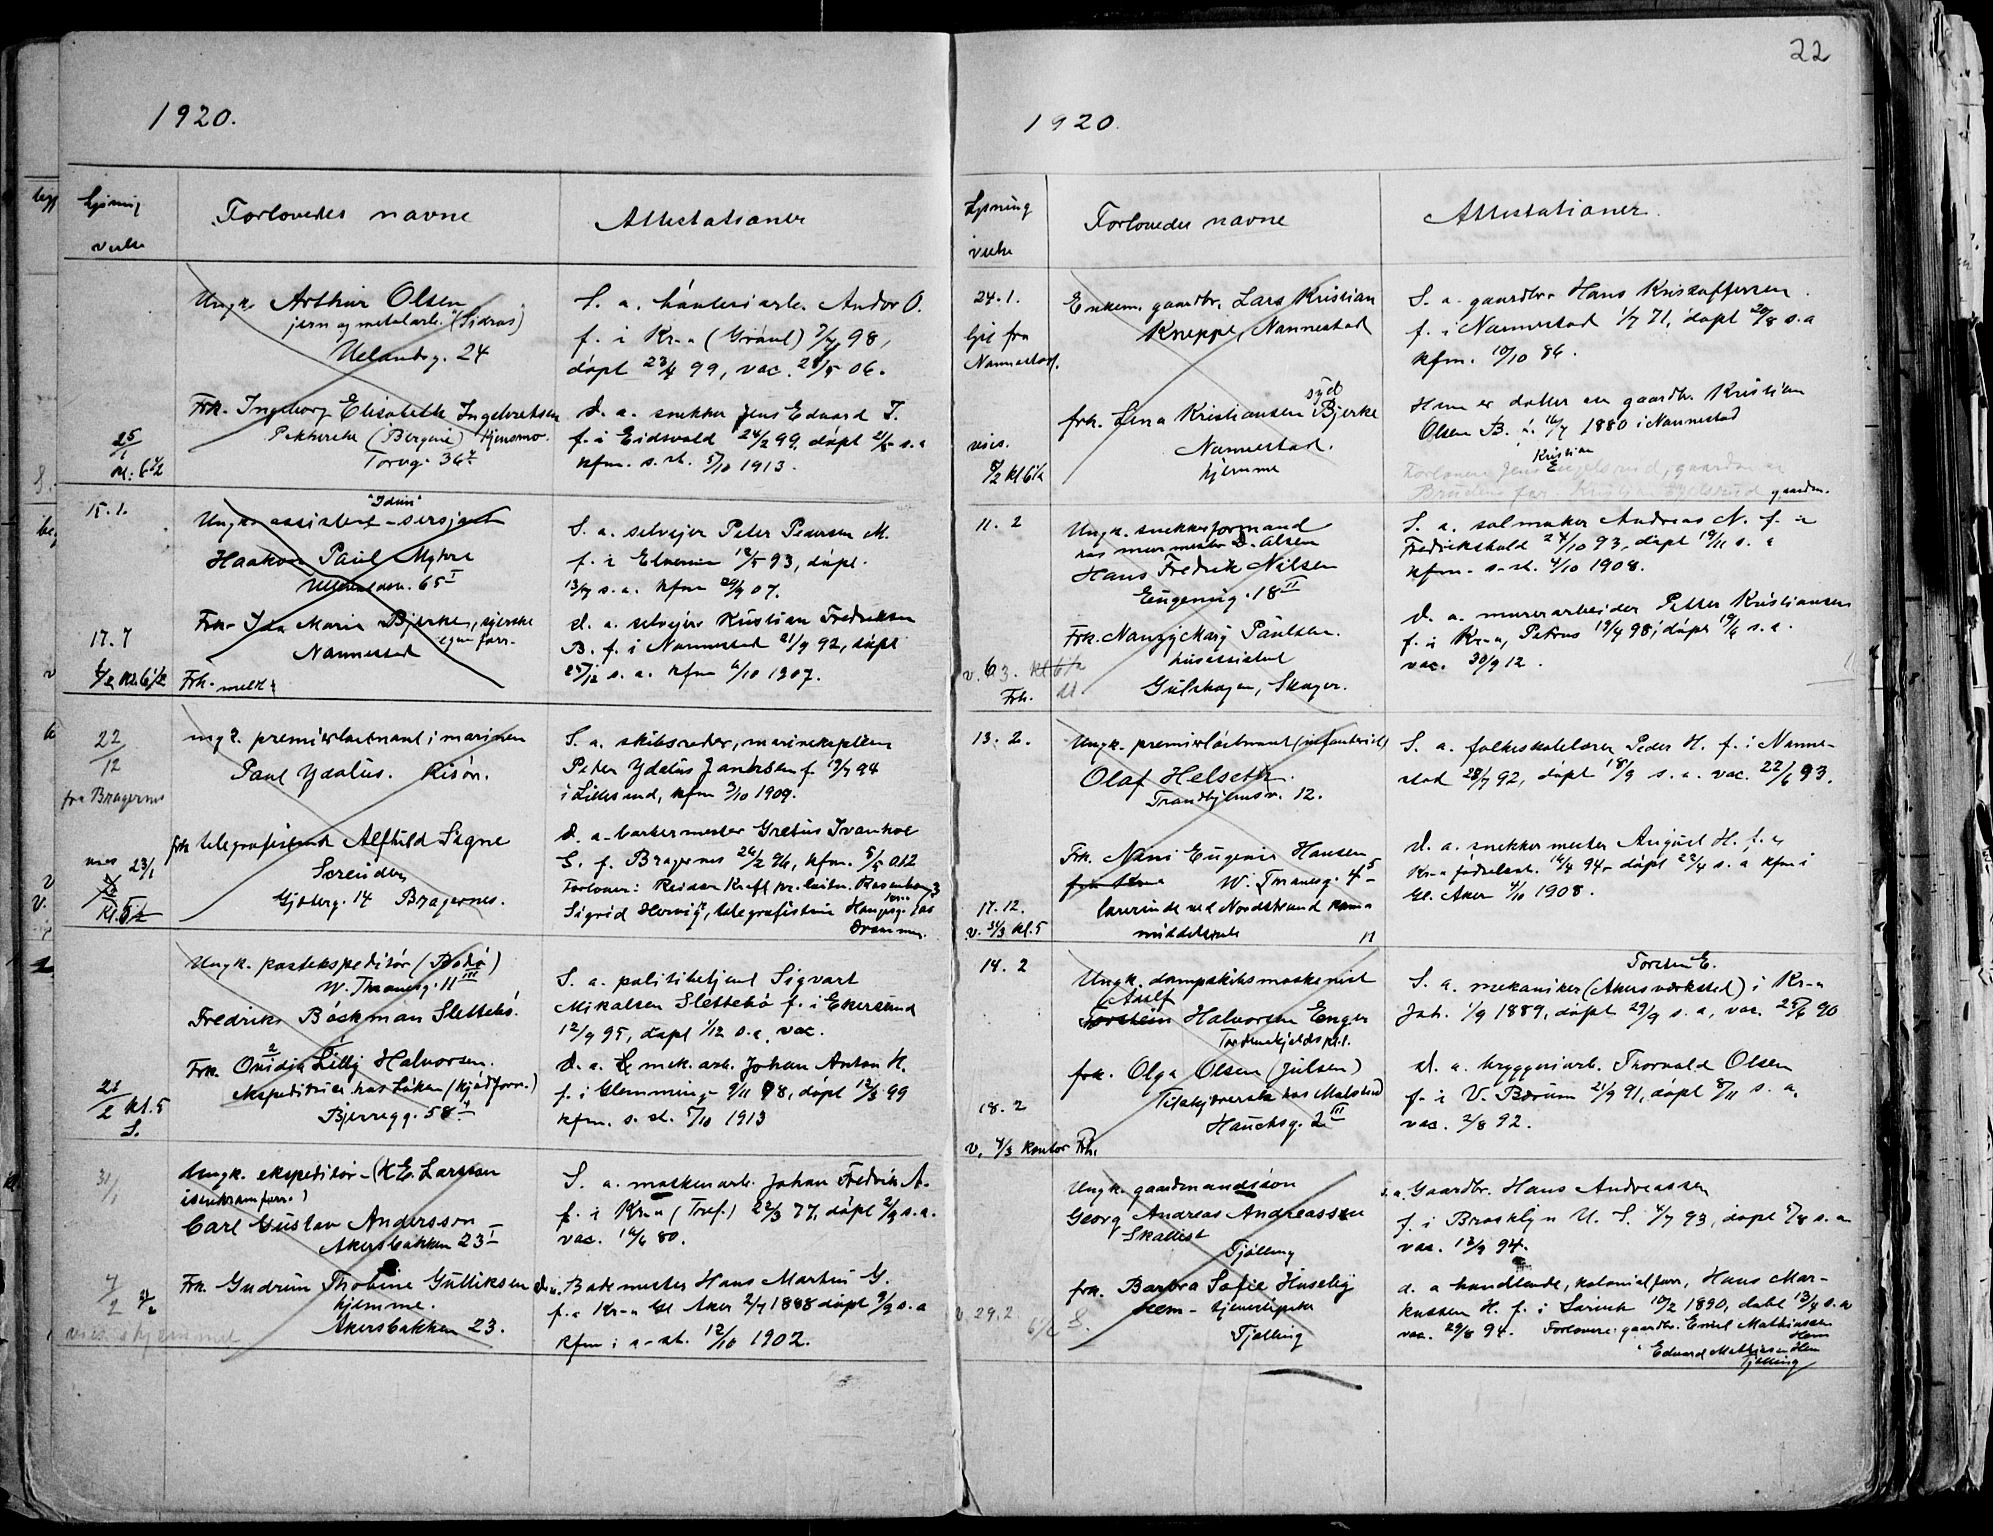 22
1920.
Lysning
vielse
Forlovedes navne
Attestationer
Ungk. Arthur Olsen
jern og metalarb. (Sidras)
Uelandsg. 24
S. a. arb. Andor O.
f. i Kr-a 98,
døpt 23/4 99, vac. 06.
Frk. Ingeborg Elisabeth Ingebretsen
(Bergene) hjemme.
Torvg. 36
D. a. snekker Jens Edvard I.
f. i Eidsvold 24/2 99, døpt s. a
kfm. s. st. 5/10 1913.
25/1
kl. 6 1/2
15. 1.
"Idun"
Ungk. assistent - sersjant
Haakon Paul Myhre
65 I
S. a. selvejer Peter Pedersen M.
f. i Elverum 12/5 93, døpt
s. a. kfm 29/9 07.
Frk. Ida Marie Bjerke, syerske
egen forr.
Nannestad
D. a. selveier Kristian Fredriksen
B. f. i Nannestad 21/9 92, døpt
25/12 s. a. kfm 6/10 1907.
17. 7
kl. 6 1/2
Frk.
22/12
fra Bragernes
ungk. premierløitnant i marinen
Paul Ydalus. Risør.
S. a. skibsreder, marinekaptein
Peter Ydalus Jantzen f. 94
i Lillesand, kfm 3/10 1909.
frk telegrafistinde Alfhild Signe
Screuder
Gjeterg. 14 Bragernes.
D. a. barbermester Gretus Ivanhoe
S. f. Bragernes 24/2 96, kfm. 012
Forlover: Reidar Kraft pr. løitn. Rosenborg 3
Sigrid Hervig, telegrafistinde
Drammen.
vies 23/1
Ungk. postekspeditør (Bodø)
W. Thranesg. 11 III
Fredrik Bøckman Slettebø.
S. a. politibetjent Sigvart
Mikalsen Slettebø f. i Ekersund
12/9 95, døpt 1/12 s. a. vac.
Frk. Ovidia Lilly Halvorsen.
ekspeditrice hos Løken (kjødforr.)
Bjerregg. 58
D. a. mek. arb. Johan Anton H.
f. i Glemminge 9/11 98, døpt 12/3 99
kfm. s. st. 5/10 1913
21/2 kl. 5
S.
31/1
Ungk. ekspeditør - (K E. Larssen
isenkramforr.)
Carl Gustav Andersson
Akersbakken 23 I
S. a. maskinarb. Johan Fredrik A.
f. i Kr-a 22/3 77, døpt s. a.
vac. 16/6 80.
Frk. Gudrun Thobine Gulliksen
hjemme.
Akersbakken 23.
D. a. Bakmester Hans Martin G.
f. i Kr-a Gl Aker 2/7 1888 døpt 9/9 s. a
kfm i s. st. 12/10 1902.
7/2
vies hjemme
1920.
Lysning
vielse
Forlovedes navne
Attestationer.
24. 1.
lyst fra
Nannestad.
Enkem. gaardbr. Lars Kristian
Knappe, Nannestad
S. a. gaardbr. Hans Kristoffersen
f. i Nannestad 1/7 71, døpt 20/8 s. a
kfm. 10/10 86.
frk. Lina Kristiansen syd Bjerke
Nannestad.
hjemme
Hun er datter av gaardbr. Kristian
Olsen B. f. 16/7 1880 i Nannestad
Kristian
Forlovere Jens Engelsrud, gaardbr.
Brudens far gaardbr.
vies.
8/2 kl 6 1/2
11. 2
Ungk. snekkerformand
hos murmester D. Olsen
Hans Fredrik Nilsen
Eugeniig. 18 II
S. a. salmaker Andreas N. f. i
Fredrikshald 24/10 93, døpt 19/11 s. a
kfm. s. st. 4/10 1908.
Frk. Nanzy Mary Paulsen.
husassistent
Gulshagen, Skager.
D. a. murerarbeider Petter Kristiansen
f. i Kr-a, Petrus 19/4 98, døpt 19/6 s. a.
vac. 30/9 12.
v. 6. 3. kl 6 1/2
Frk.
13. 2.
Ungk. premierløitnant (infanteriet)
Olaf Helseth.
Trondhjemsv. 12.
S. a. folkeskolelærer Peder H. f. i Nanne-
stad 28/7 92, døpt 18/9 s. a. vac. 22/6 93.
Frk. Nani Eugenie Hansen
W. Thranesg. 45
lærerinde ved Nordstrand komm.
middelskole
D. a. snekkermester August H. f. i
Kr-a fødselsst. 14/4 94 døpt 22/4 s. a kfm i
Gl. Aker 4/10 1908.
17. 12.
v. 31/3 kl. 5
14. 2
Ungk. dampskibsmaskinist
Adolf
Torstein Halvorsen Enger
Tordenskjoldspl. 1.
Torsten E.
S. a. mekaniker (Akers værksted) i Kr-a
Joh. 1/9 1889, døpt 29/9 s. a, vac. 25/6 90
frk. Olga Olsen (Julsen)
Hauchsg. 2 III
D. a. bryggeriarb. Thorvald Olsen
f. i V. Bærum 21/9 91, døpt 8/11 s. a.
vac. 2/8 92.
18. 2
v. 4/3 kontor Frk.
Ungk. gaardmandssøn
Georg Andreas Andreassen
Skallist
Tjølling
s. a. Gaardbr. Hans Andreassen
f. i Brooklyn U. S. 4/7 93, døpt 5/8 s. a
vac. 12/9 94.
frk. Barbra Sofie Huseby
Hem - tjenestepike
Tjølling
d. a handlende, kolonialforr, Hans Mar-
kussen H. f. i Larvik 10/2 1890, døbt 13/4 s. a
vac. 29/8 94. Forlovere: gaardbr. Emil Mathiassen
Hem
" Edvard Mathiasen Hem
Tjølling
v. 29. 2
6 1/2 S.